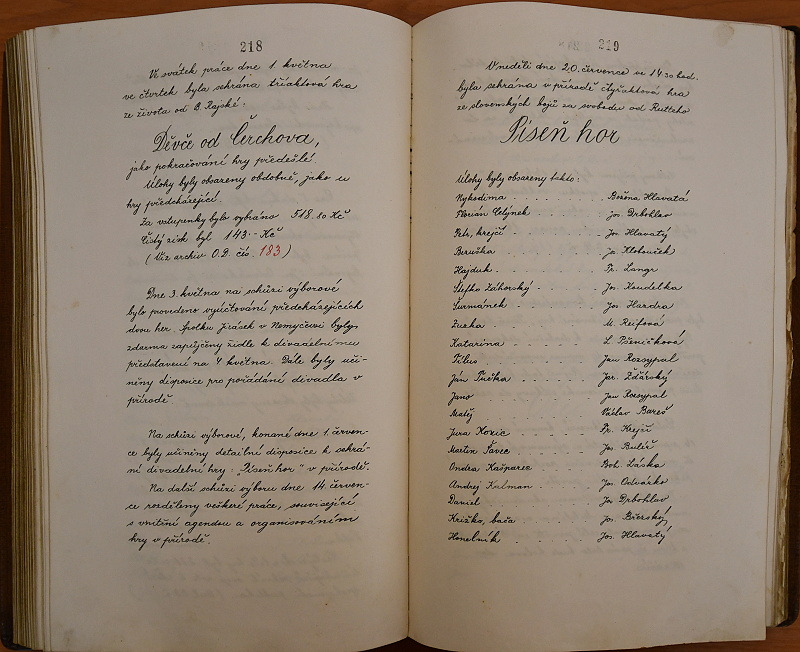 218
Ve svátek práce dne 1. května
ve čtvrtek byla sehrána tříaktová hra
ze života od B. Rajské:
Děvče od Čerchova,
jako pokračování hry předešlé.
Úlohy byly obsazeny obdobně, jako u
hry předcházející.
Za vstupenky bylo vybráno 518.80 Kč
Čistý zisk byl 143.- Kč
(Viz archiv O.D. čís. 183)
Dne 3. května na schůzi výborové
bylo provedeno vyúčtování předcházejících
dvou her. Spolku Jirásek v Nemyčevsi byly
zdarma zapůjčeny židle k divadelnímu
představení na 4 května. Dále byly uči-
něny disposice pro pořádání divadla v
přírodě.
Na schůzi výborové, konané dne 1. červen-
ce byly učiněny detailní disposice k sehrá-
ní divadelní hry: „Píseň hor" v přírodě.
Na další schůzi výboru dne 14. červen-
ce rozděleny veškeré práce, související
s vnitřní agendou a organisováním
hry v přírodě.
219
V neděli dne 20. července ve 14.30 hod.
byla sehrána v přírodě čtyřaktová hra
ze slovenských bojů za svobodu od Rutteho
Píseň hor
Úlohy byly obsazeny takto:
Nykodima . . . . . . . Božena Hlavatá
Florián Cetýnek . . . . . Jos. Drbohlav
Petr, krejčí . . . . . . Jos. Hlavatý
Beruška . . . . . . . Ja. Klobouček
Hajduk . . . . . . . Fr. Langr
Štefko Záhorský . . . . . Jos. Koudelka
Šurmánek . . . . . . Jos. Hazdra
Zuzka . . . . . . . M. Reifová
Katarina . . . . . . L. Pšeničková
Filus . . . . . . . Jan Rozsypal
Ján . . . . . . Jar. Žďárský
Jano . . . . . . . Jan Rozsypal
Matěj . . . . . . . Václav Bareš
Jura Kozic . . . . . . Fr. Krejčí
Martin Šavec . . . . . Jos. Bulíř
Ondra Kašparec . . . . . Boh. Láska
Andrej Kalman . . . . . Jos. Odvárko
Daniel . . . . . . . Jos. Drbohlav
Križko, bača . . . . . Jos. Březský
Honelník . . . . . . Jos. Hlavatý